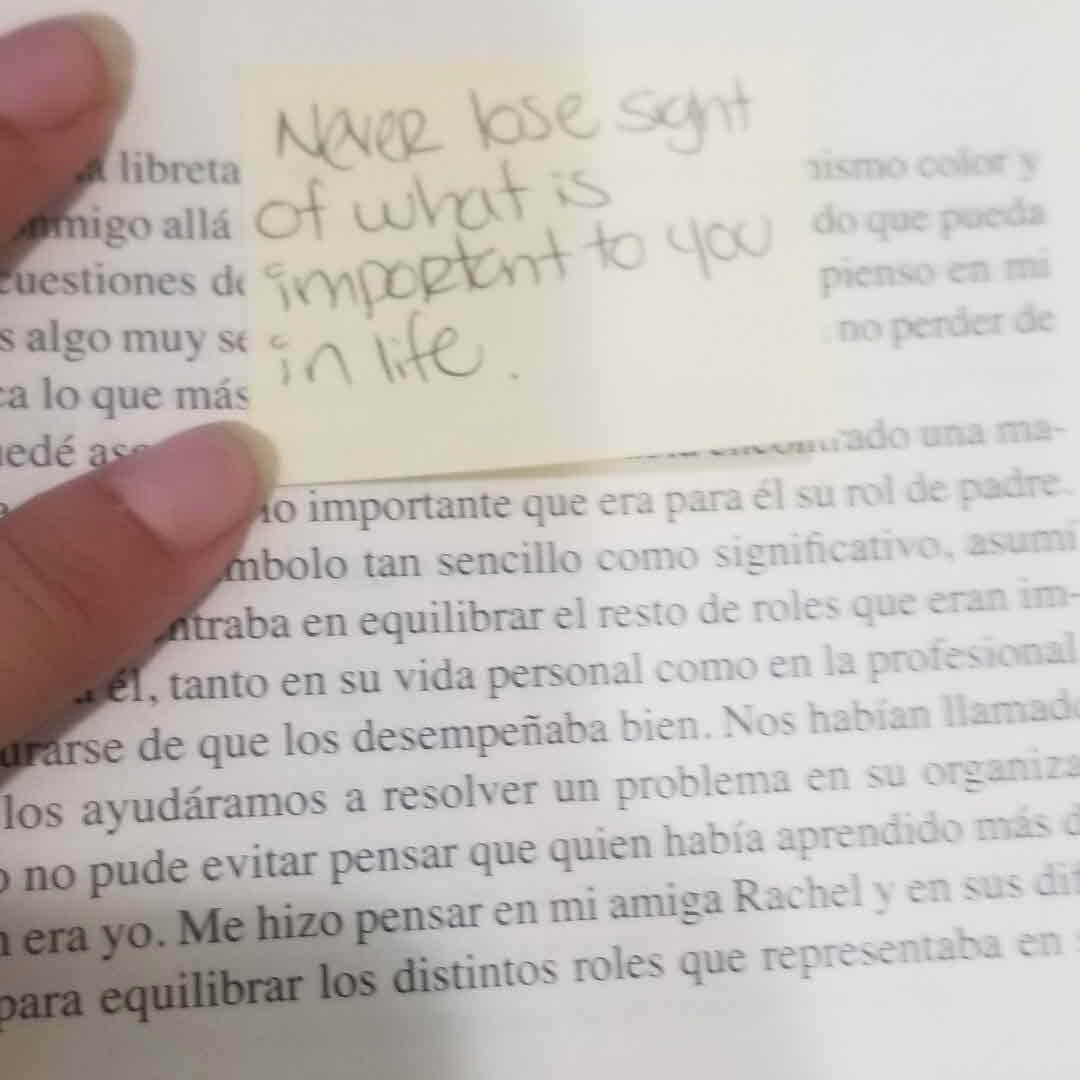 Never lose sight
of what is
important to you
in life.
libreta
mismo color y
allá
do que pueda
cuestiones de
pienso en mi
s algo muy se
no perder de
ca lo que más
ado una ma-
importante que era para él su rol de padre.
mbolo tan sencillo como significativo, asumí
ntraba en equilibrar el resto de roles que eran im-
a él, tanto en su vida personal como en la profesional
urarse de que los desempeñaba bien. Nos habían llamado
los ayudáramos a resolver un problema en su organiza
o no pude evitar pensar que quien había aprendido más d
n era yo. Me hizo pensar en mi amiga Rachel y en sus dif
para equilibrar los distintos roles que representaba en